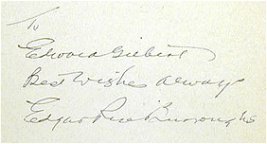 To
Edward Gilbert
Best Wishes always
Edgar Rice Burroughs